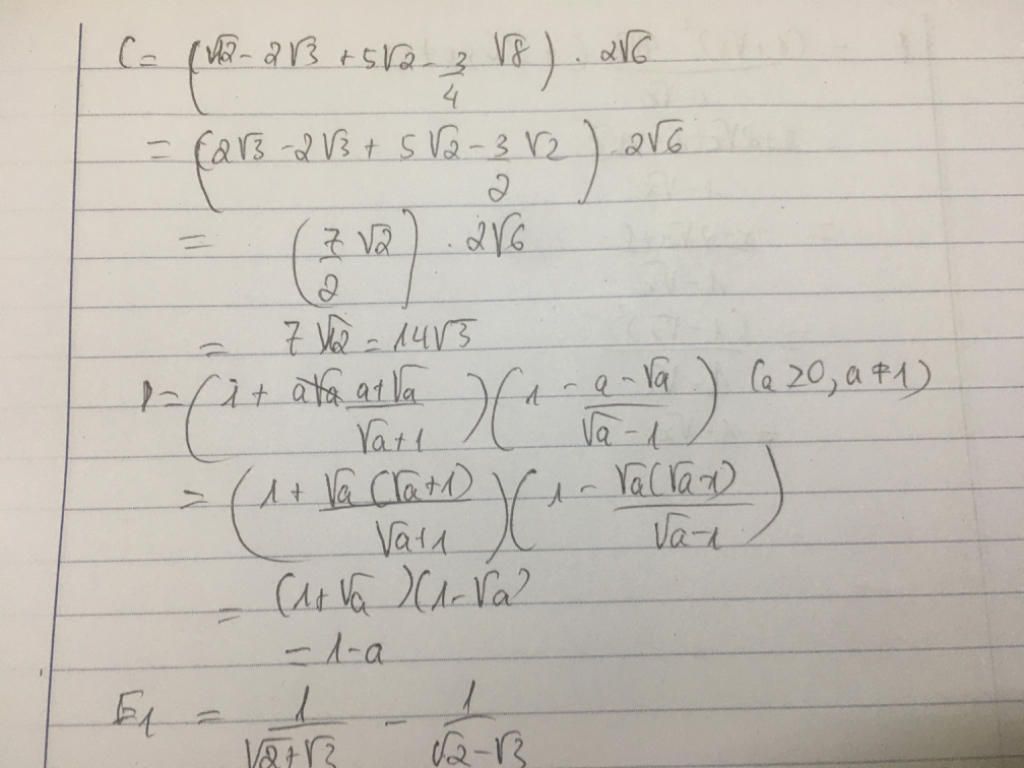 C = (√12 - 2√3 + 5√2 - 3/4 √8) . 2√6
= (2√3 - 2√3 + 5√2 - 3/2 √2) 2√6
= (7/2 √2) . 2√6
= 7√12 = 14√3
D = (1 + (a+√a)/(√a+1)) (1 - (a-√a)/(√a-1)) (a ≥ 0, a ≠ 1)
= (1 + √a(√a+1)/(√a+1)) (1 - √a(√a-1)/(√a-1))
= (1+√a)(1-√a)
= 1-a
E1 = 1/(√2+√3) - 1/(√2-√3)